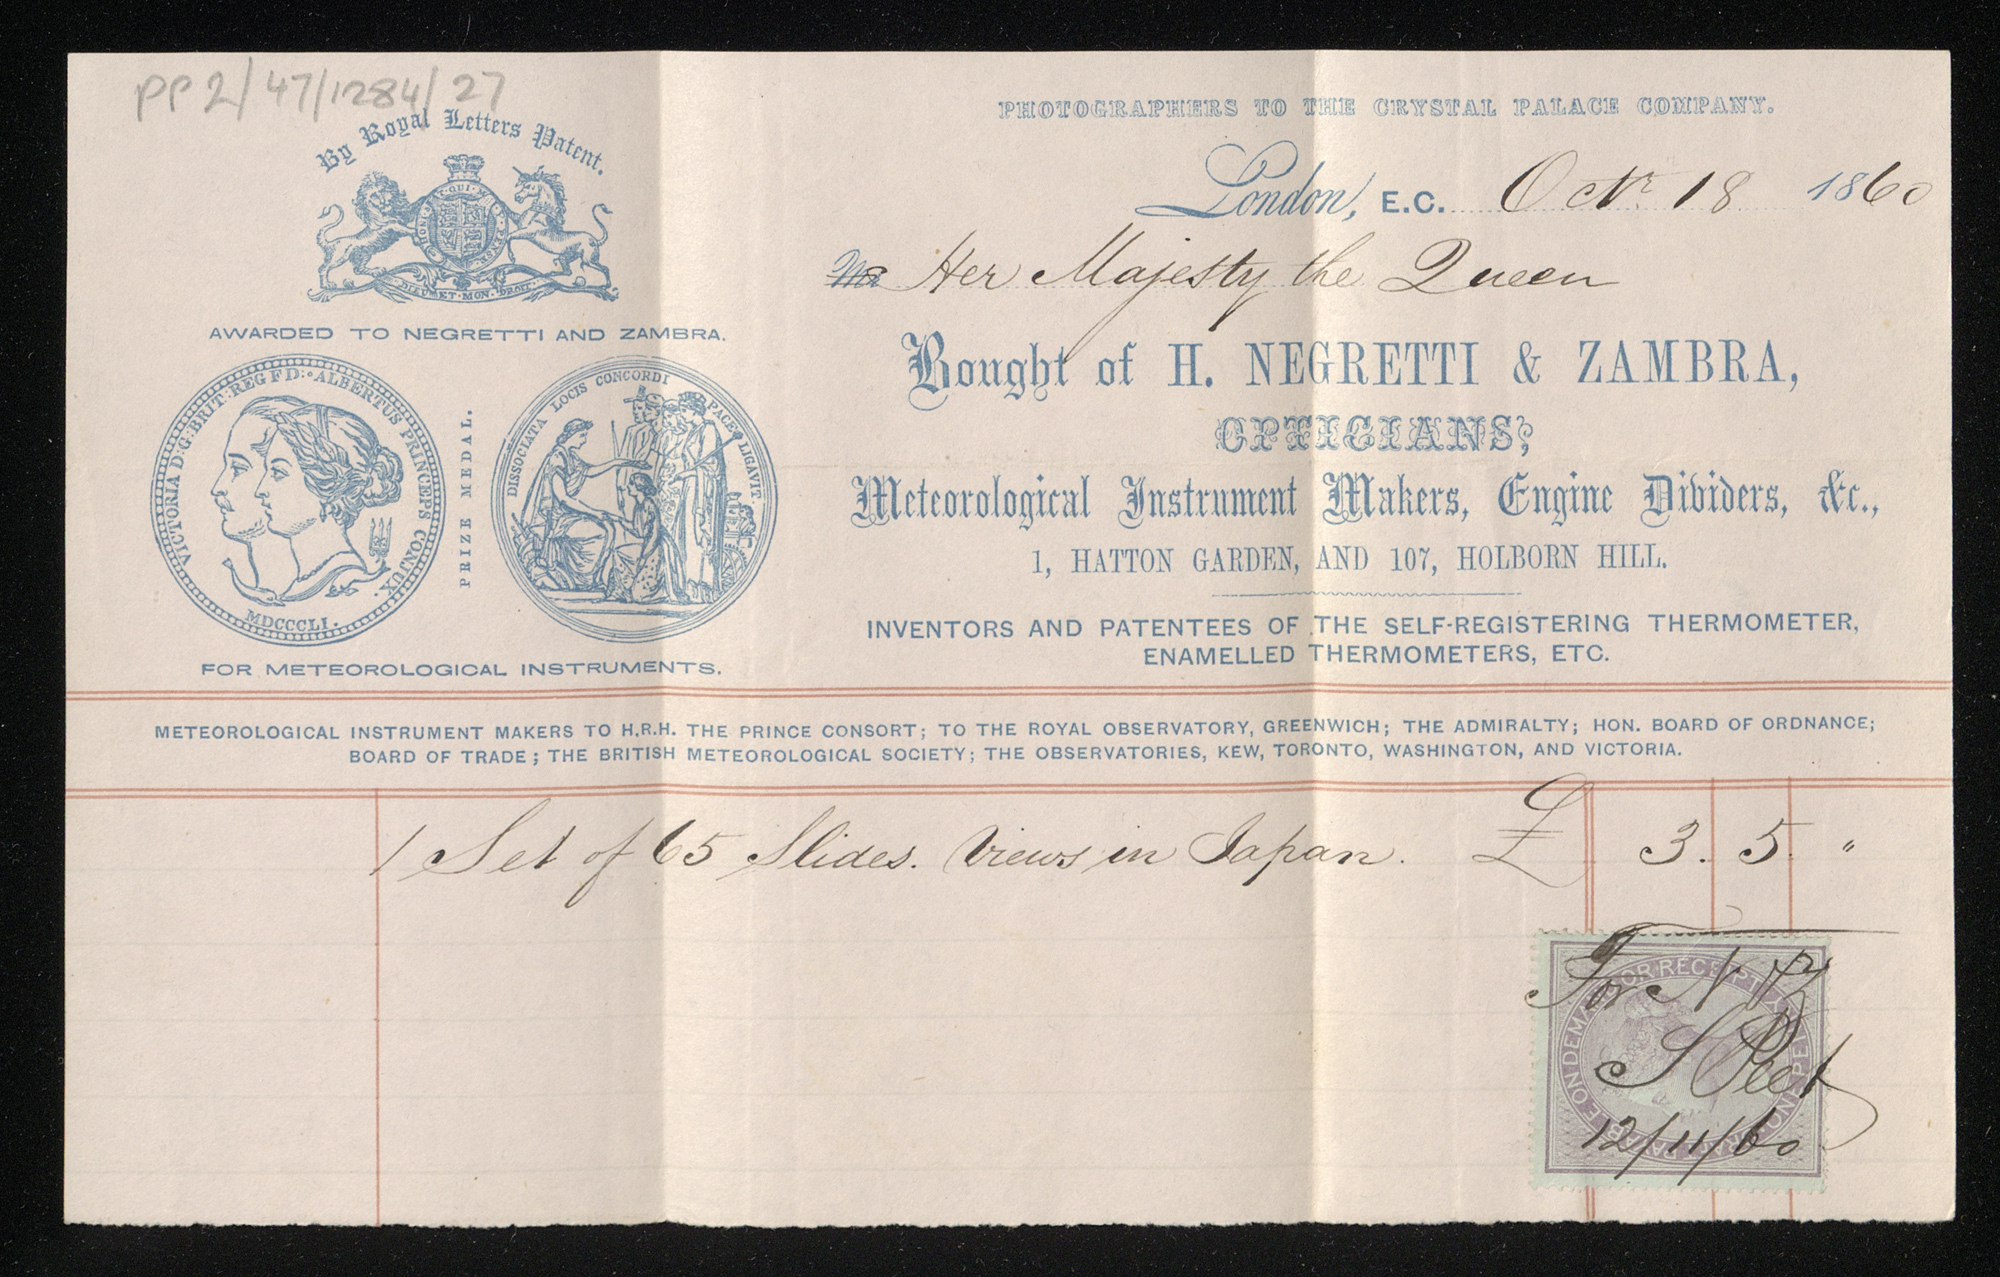 PP2/47/1284/27
By Royal Letters Patent.
PHOTOGRAPHERS TO THE CRYSTAL PALACE COMPANY.
London, E.C. Octr 18 1860
Mr Her Majesty the Queen
DIEU ET MON DROIT
AWARDED TO NEGRETTI AND ZAMBRA.
VICTORIA D:G:BRIT:REG F D: ALBERTUS PRINCEPS CONJUX.
MDCCCLI.
PRIZE MEDAL.
DISSOCIATA LOCIS CONCORDI PACE LIGAVIT
FOR METEOROLOGICAL INSTRUMENTS.
Bought of H. NEGRETTI & ZAMBRA,
OPTICIANS,
Meteorological Instrument Makers, Engine Dividers, &c.,
1, HATTON GARDEN, AND 107, HOLBORN HILL.
INVENTORS AND PATENTEES OF THE SELF-REGISTERING THERMOMETER,
ENAMELLED THERMOMETERS, ETC.
METEOROLOGICAL INSTRUMENT MAKERS TO H.R.H. THE PRINCE CONSORT; TO THE ROYAL OBSERVATORY, GREENWICH; THE ADMIRALTY; HON. BOARD OF ORDNANCE;
BOARD OF TRADE; THE BRITISH METEOROLOGICAL SOCIETY; THE OBSERVATORIES, KEW, TORONTO, WASHINGTON, AND VICTORIA.
1 Set of 65 Slides. Views in Japan. £ 3. 5 "
For N & Z
S Peet
12/11/60